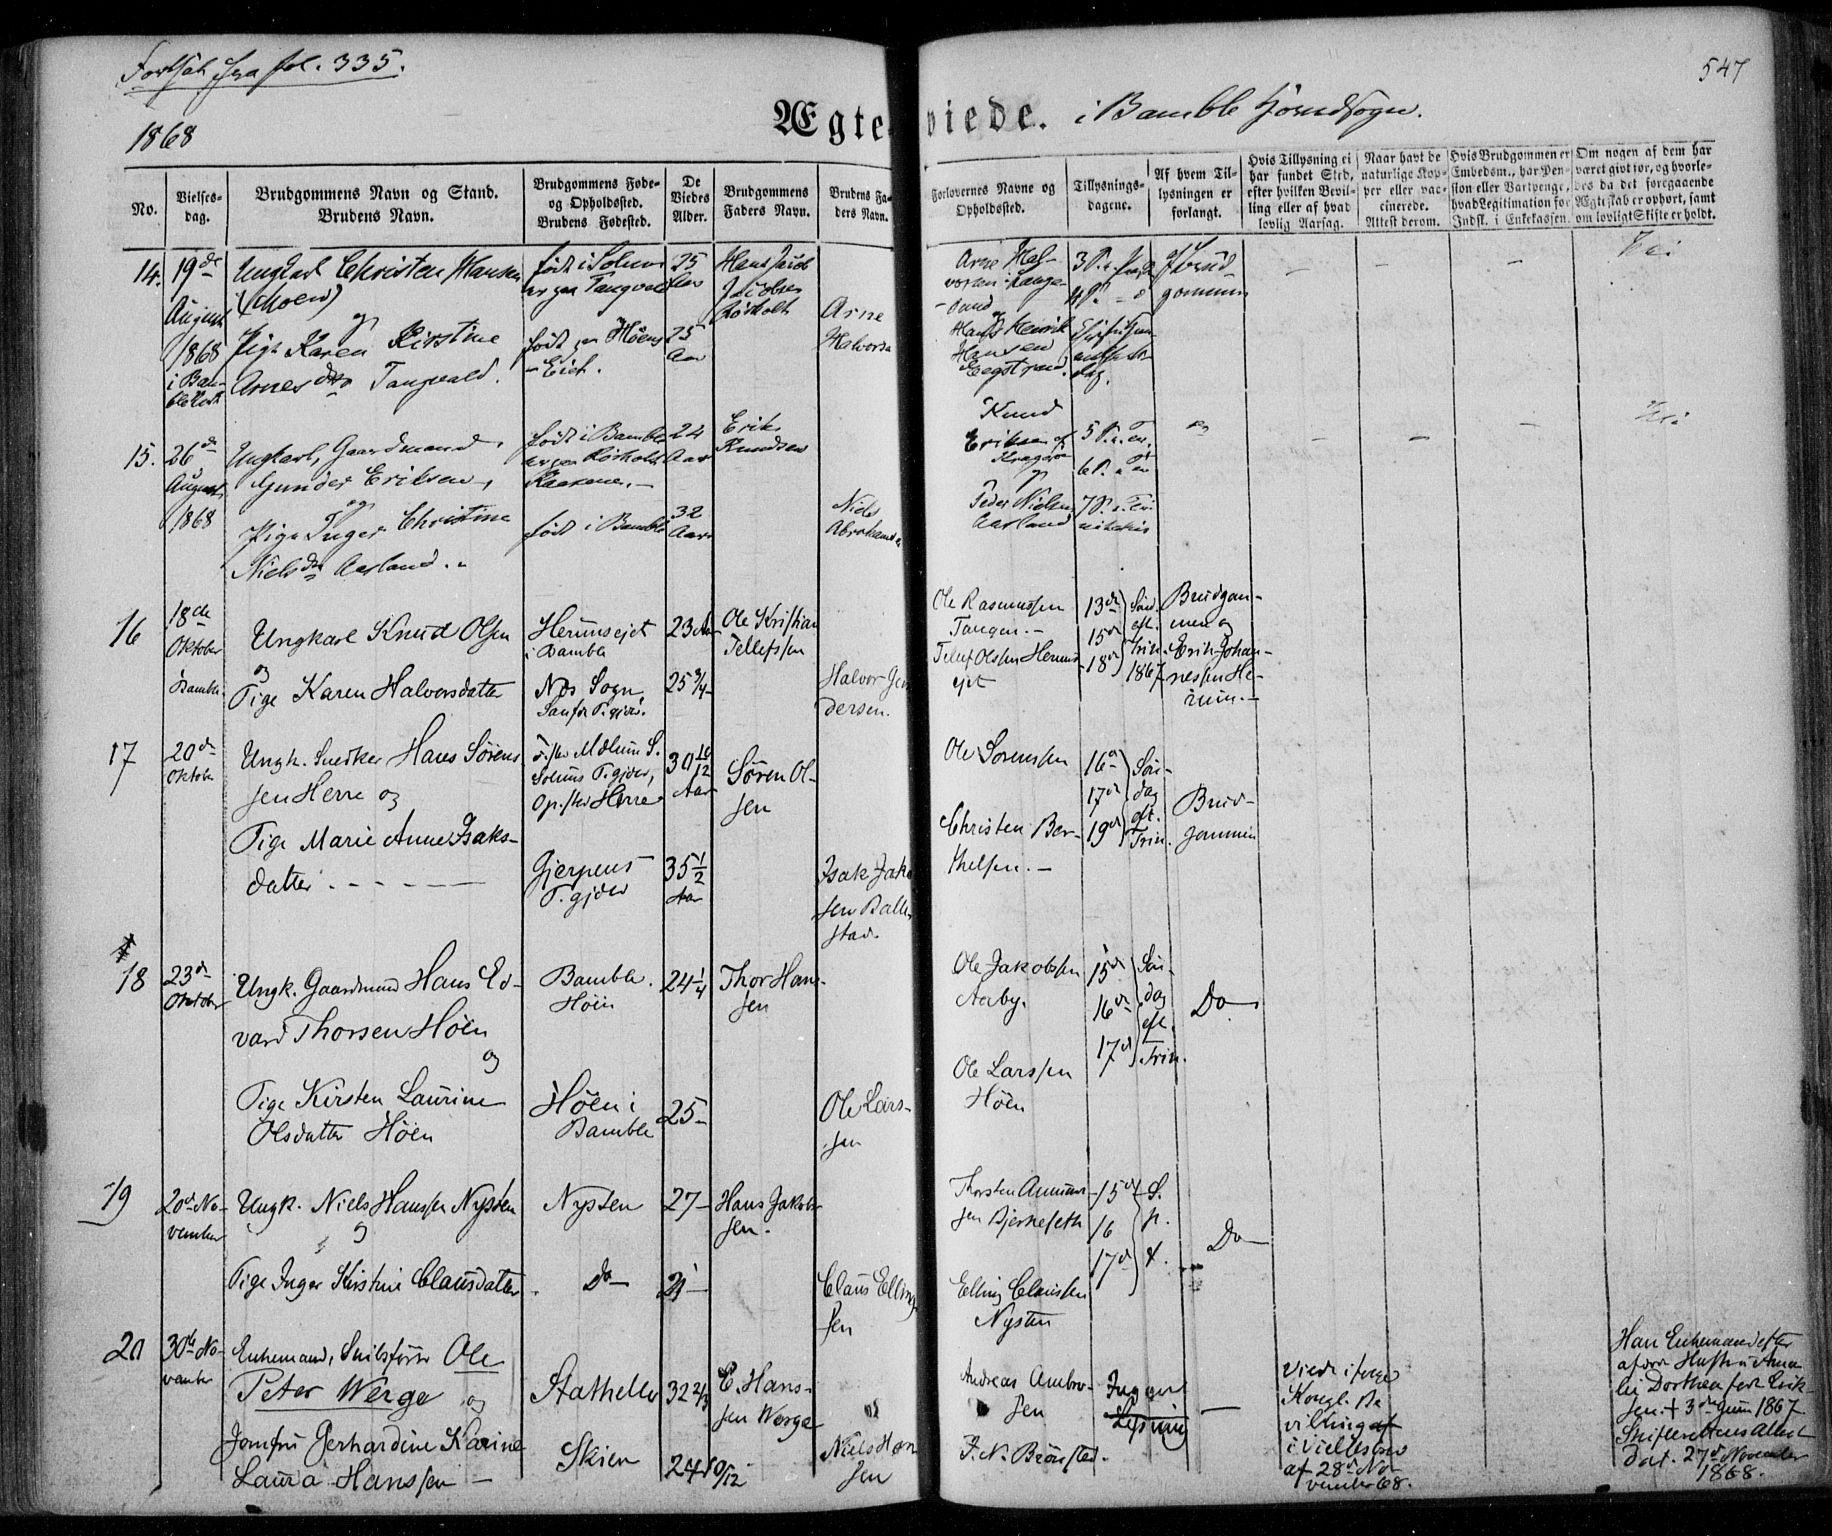 Fortsat fra fol. 335.
547
1868
Ægteviede. i Bamble Hovedsogn.
No.
Vielses-
dag.
Brudgommens Navn og Stand.
Brudens Navn.
Brudgommens Føde-
og Opholdssted.
Brudens Fødested.
De
Viedes
Alder.
Brudgommens
Faders Navn.
Brudens Fa-
ders Navn.
Forlovernes Navne og
Opholdssted.
Tillysnings-
dagene.
Af hvem Til-
lysningen er
forlangt.
Hvis Tillysning ei
har fundet Sted,
efter hvilken Bevil-
ling eller af hvad
lovlig Aarsag.
Naar havt de
naturlige Kop-
per eller vac-
cinerede.
Attest derom.
Hvis Brudgommen er
Embedsm., har Pen-
sion eller Vartpenge,
hvad Legitimation for
Indsk. i Enkekassen.
Om nogen af dem har
været gift før, og hvorle-
des da det foregaaende
Ægteskab er ophørt, samt
om lovligt Skifte er holdt.
14.
19de
August
1868
i Bam-
ble Kirke
Ungkarl Christen Hansen
(Moen)
og
Pige Karen Kirstine
Arnesdtr Tangvald.
født i Solum
er paa Tangvald
født paa Høens
Eiet.
25
Aar
25
Aar
Hans
Jacobsen
Rørholt
Arne
Halvorsen
Arne Hal-
vorsen Lange-
sund
og
Hans Henrik
Hansen
Eegstrand.
Brud-
gommen
Nei
15.
26de
August
1868
Ungkarl, Gaardmand
Gunder Eriksen,
og
Pige Inger Christine
Nielsdtr Aasland.
født i Bamble
er paa Rørholt
født i Bamble
24
Aar
32
Aar
Erik
Knudsen
Niels
Abrahamsen
Knud
Eriksen
Kragerø
og
Peder Nielsen
Aasland
Nei
16
18de
Oktober
Bamble
Ungkarl Knud Olsen
og
Pige Karen Halvorsdatter
Herumsejet
i Bamble
Næs Sogn,
23 Aar
25 3/4
Ole Kristian
Tellefssen
Halvor Gun-
dersen.
Ole Rasmussen
Tangen.
Tellef Olsen Herums-
ejet
13de
15de
18de
Sønd.
eft.
Trin.
1867
Brudgom-
men og
Erik Johan-
nessen He-
rum.
17
20de
Oktober
Ungk. Snedker Hans Sørens-
sen Herre og
Pige Marie Anne Isaks-
datter
Fster Mælum S.
Solums P.gjeld,
Op.sted Herre
Gjerpens
P.gjeld
30 10/12
Aar
35 1/2
Aar
Søren Ol-
sen
Isak Jakob-
sen Balle-
stad.
Ole Sørenssen
Christen Ber-
thelsen.
16de
17de
19de
Søn-
dag
eft.
Trin.
Brud-
gommen
18
23de
Oktober
Ungk. Gaardmand Hans Ed-
vard Thorsen Høen
og
Pige Kirsten Laurine
Olsdatter Høen
Bamble.
Høen
Høen i
Bamble
24 1/4
25
Thor Hans-
sen
Ole Lars-
sen
Ole Jakobsen
Aaby.
Ole Larssen
Høen
15de
16de
17de
Søn-
dag
eft.
Trin.
Do
19
20de No-
vember
Ungk. Niels Hanssen Nysten
og
Pige Inger Kirstine Clausdatter
Nysten
Do
27
21
Hans Jakob-
sen.
Claus Elling-
sen
Thorsten Amund-
sen Bjerkeseth
Elling Claussen
Nysten
15de
16
17de
S.
p.
t.
Do
20
30te No-
vember
Enkemand, Skibsfører Ole
Peter Werge
og
Jomfru Gerhardine Karine
Laura Hanssen
Stathelle
Skien
32 2/3
24 10/12
E. Hans-
sen Werge
Niels Han-
sen
Andreas Ambro-
sen
F. N. Brønsted.
Ingen
Lysning
Viede ifølge
Kongl. Be
villing
i Vielsesbrev
af 28de No-
vember 68.
Han Enkemand efter
afdøde Hustru Anna
Dorthea født Erik-
sen. + 3die Juni 1867.
Skifterettens Attest
dat. 27de November
1868.